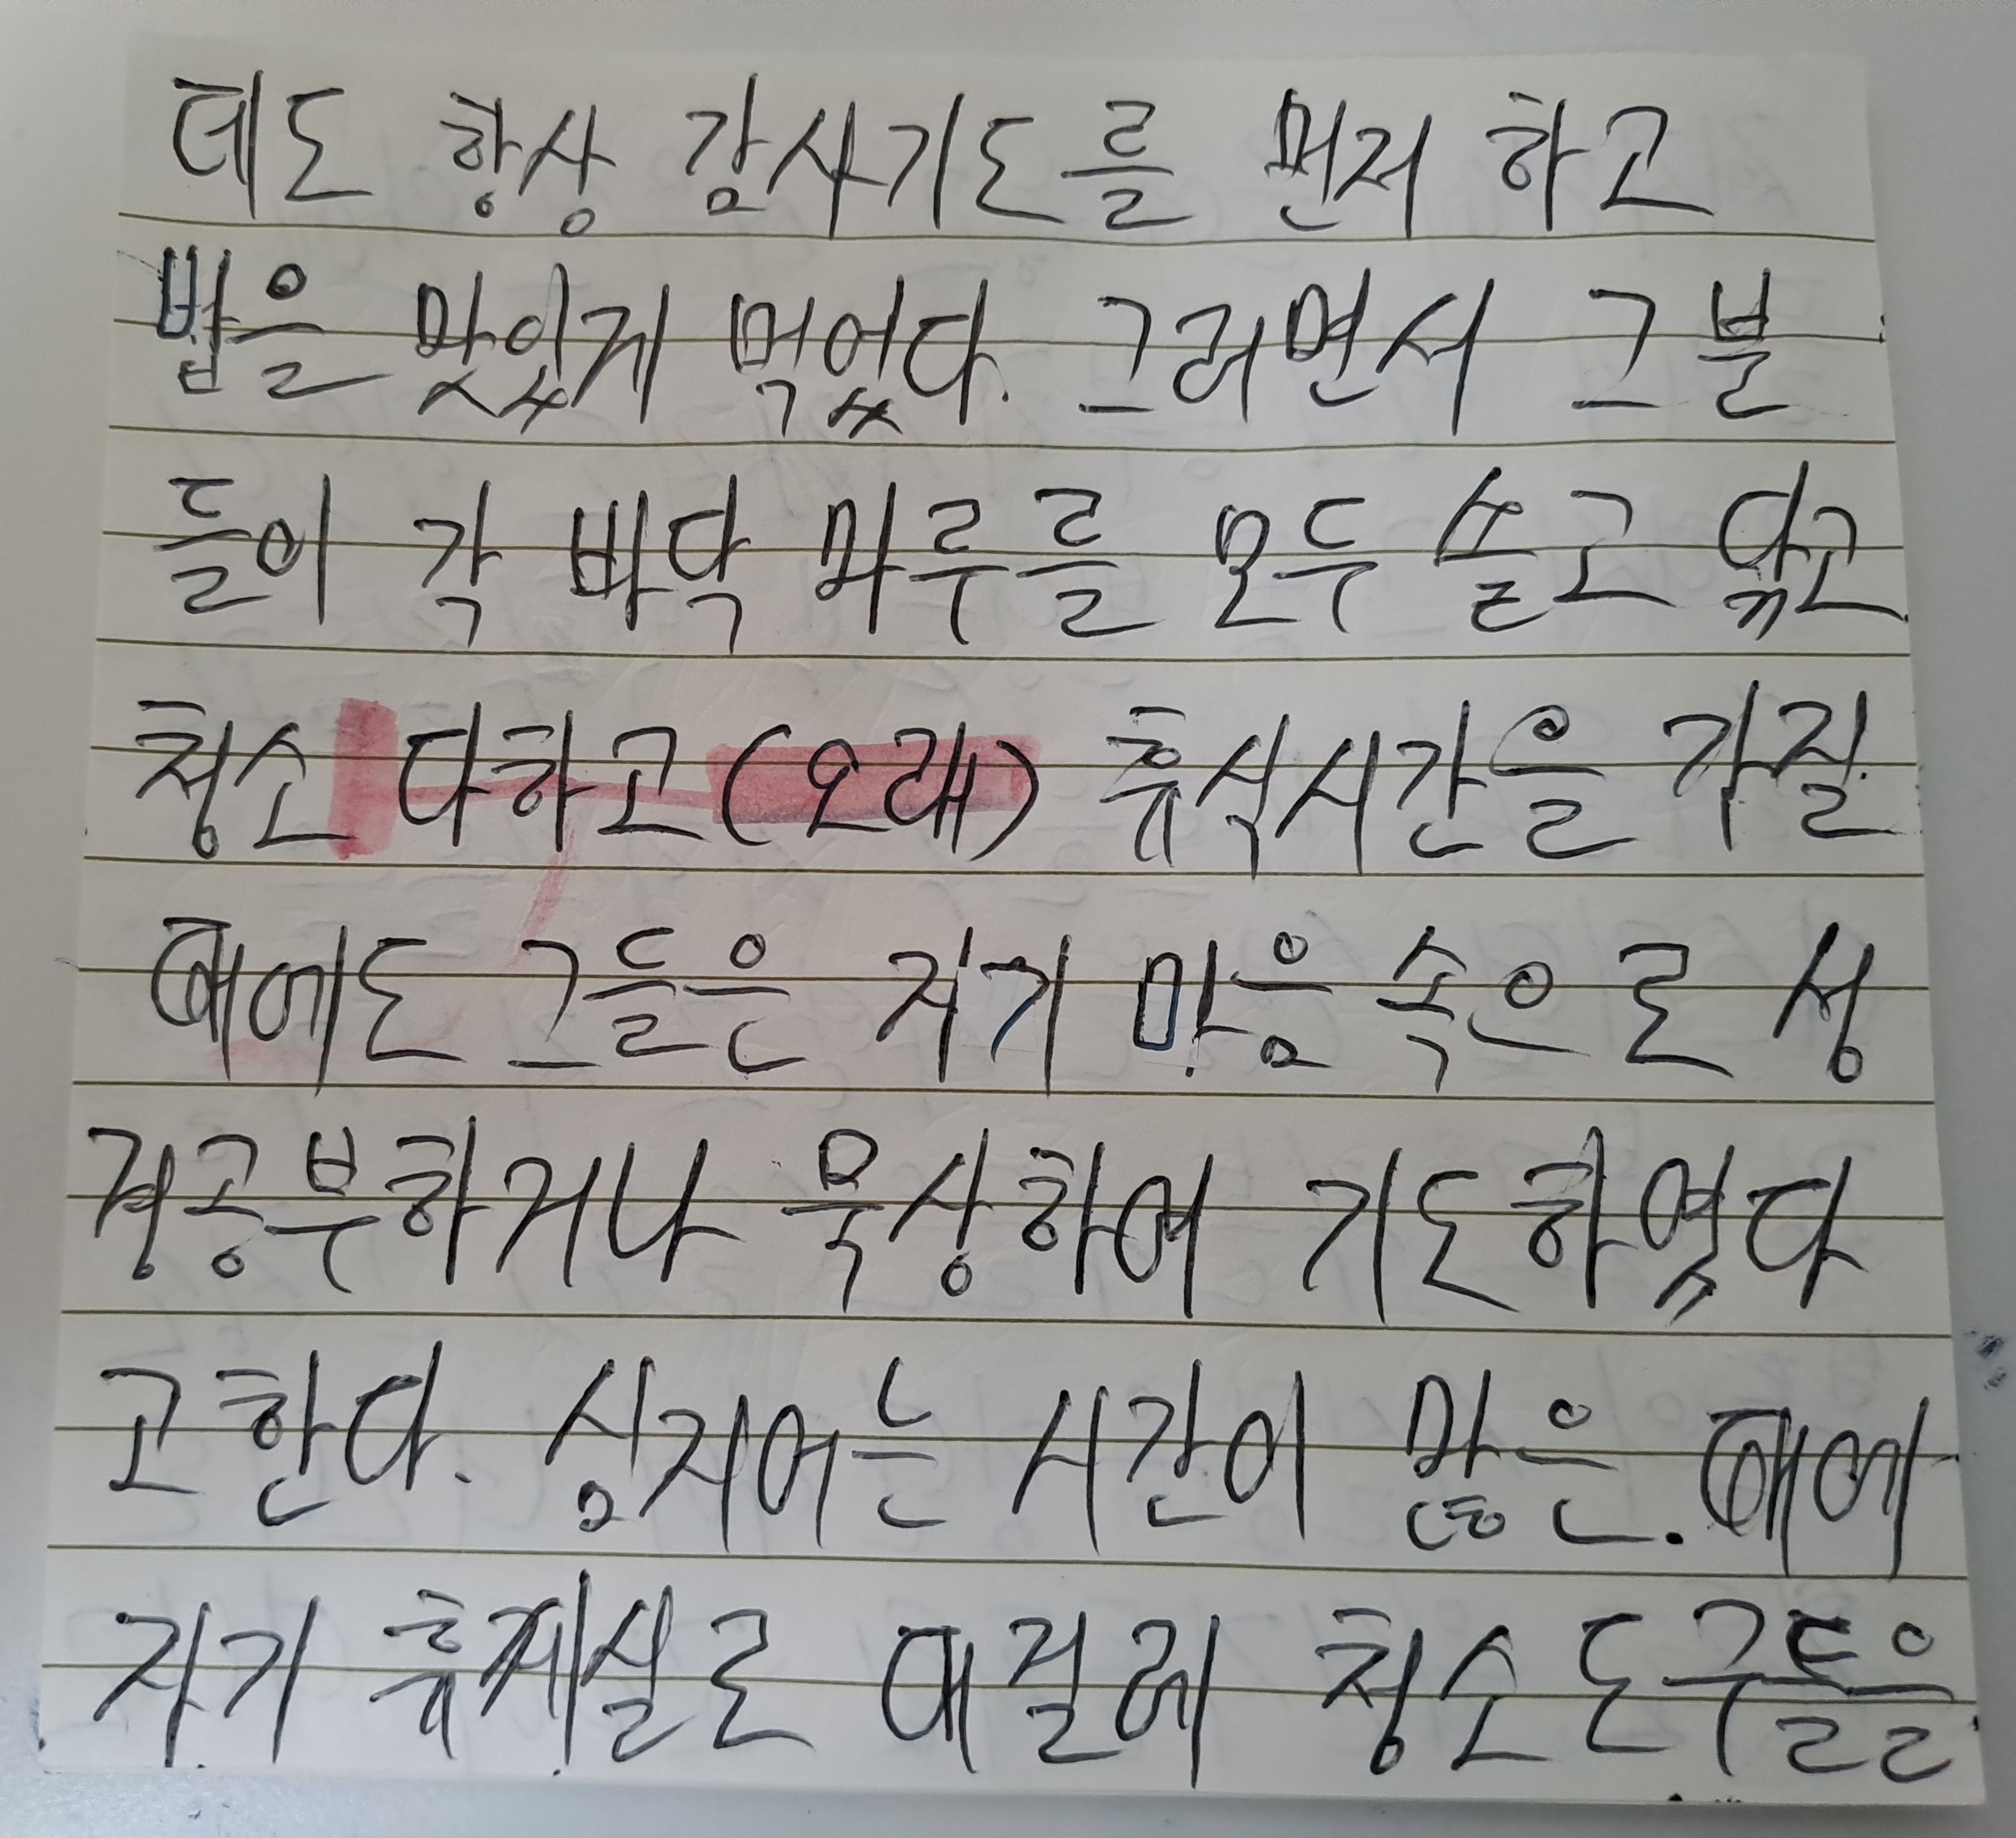 데도 항상 감사기도를 먼저 하고
밥을 맛있게 먹었다. 그러면서 그 분
들이 각 바닥 마루를 모두 쓸고 닦고
청소 다하고 (오래) 휴식시간을 가질
때에도 그들은 자기 마음 속으로 성
경공부하거나 묵상하여 기도하였다
고한다. 심지어는 시간이 많은. 때에
자기 휴게실로 대걸레 청소도구들을